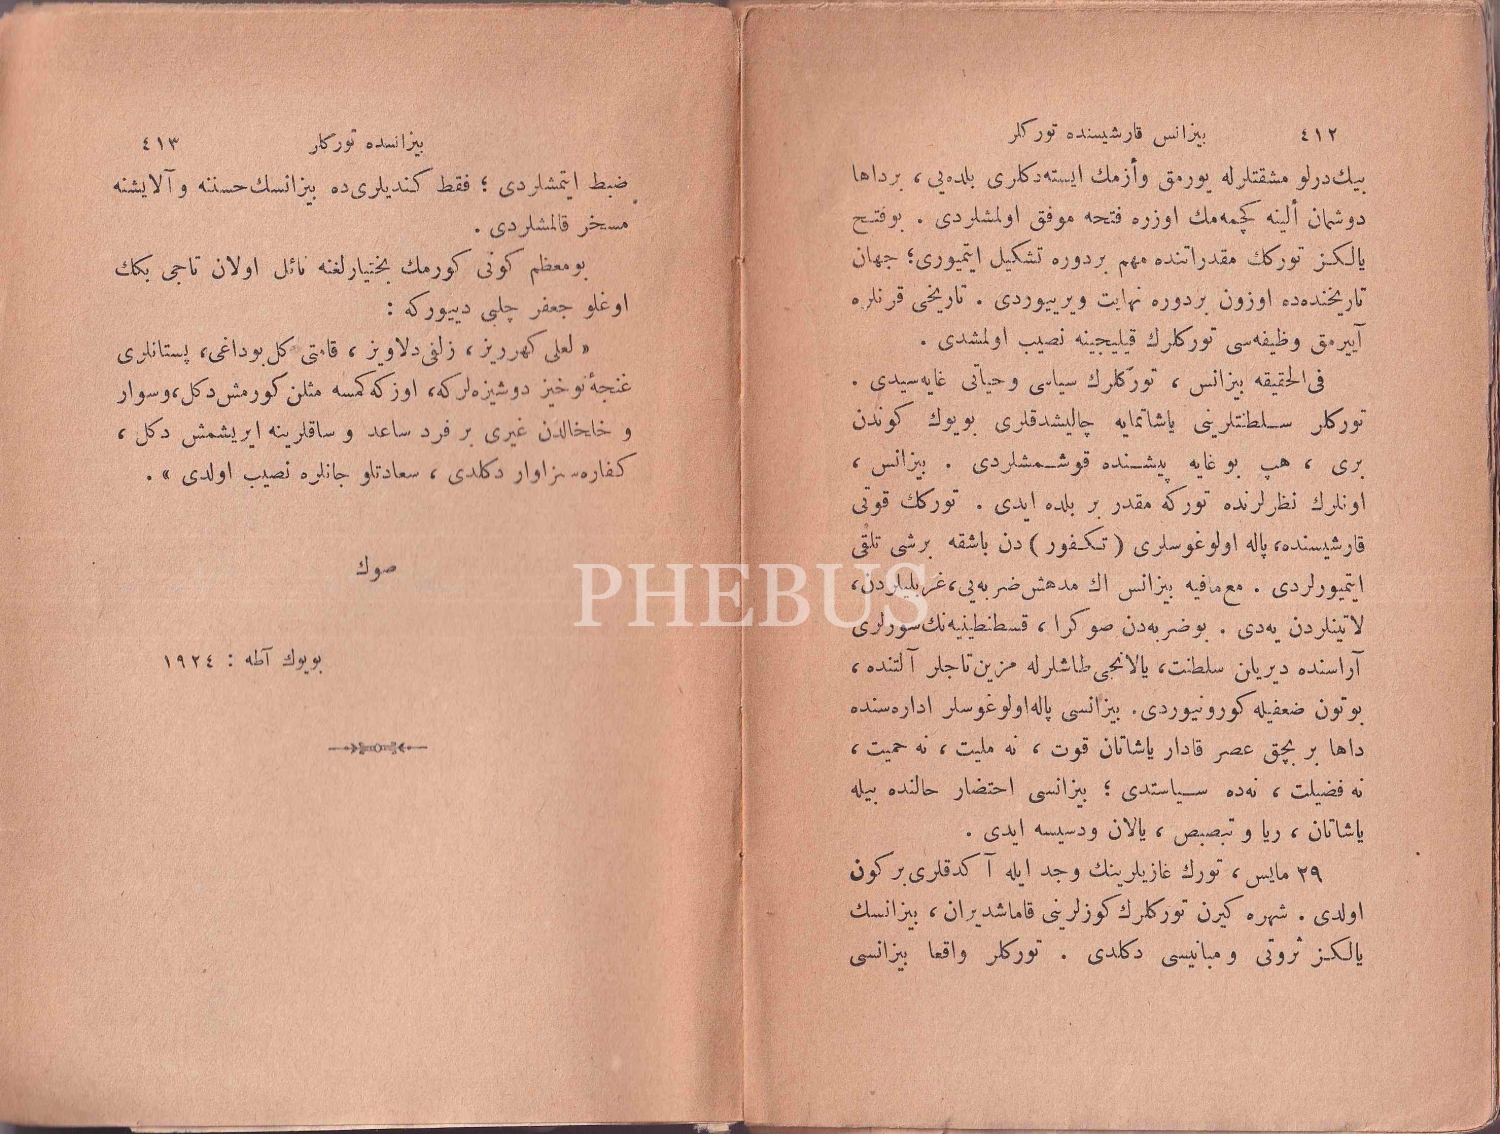 ٤١٢ بیزانس قارشیسنده توركلر
بیك‌درلو مشقتلرله یورمق وأزمك ایسته‌دكلری بلده‌یی، برداها
دوشمان ألینه كچمه‌مك اوزره فتحه موفق اولمشلردی . بوفتح
یالكز توركك مقدراتنده مهم بردوره تشكیل ایتمیوری؛ جهان
تاریخنده‌ده اوزون بردوره نهایت ویرییوردی . تاریخی قرنلره
آییرمق وظیفه‌سی توركلرك قیلیجینه نصیب اولمشدی .
فی‌الحقیقه بیزانس ، توركلرك سیاسی وحیاتی غایه‌سیدی .
توركلر سلطنتلرینی یاشاتمایه چالیشدقلری بویوك كوندن
بری ، هپ بو غایه پیشنده قوشمشلردی . بیزانس ،
اونلرك نظرلرنده توركه مقدر بر بلده ایدی . توركك قوتی
قارشیسنده، پاله اولوغوسلری ( تكفور ) دن باشقه برشی تلقی
ایتمیورلردی . مع‌مافیه بیزانس اك مدهش ضربه‌یی، غربلیلردن،
لاتینلردن یه‌دی . بوضربه‌دن صوكرا ، قسطنطینیه‌نك سورلری
آراسنده دیریلن سلطنت، یالانجی طاشلرله مزین تاجلر آلتنده ،
بوتون ضعفیله كورونیوردی. بیزانسی پاله‌اولوغوسلر اداره‌سنده
داها بر بچق عصر قادار یاشاتان قوت ، نه ملیت ، نه حمیت ،
نه فضیلت ، نه‌ده سیاستدی ؛ بیزانسی احتضار حالنده بیله
یاشاتان ، ریا و تبصبص ، یالان ودسیسه ایدی .
٢٩ مایس ، تورك غازیلرینك وجد ایله آ كدقلری بر كون
اولدی . شهره كیرن توركلرك كوزلرینی قاماشدیران ، بیزانسك
یالكز ثروتی ومبانیسی دكلدی . توركلر واقعا بیزانسی
بیزانسده توركلر ٤١٣
ضبط ایتمشلردی ؛ فقط كندیلری‌ده بیزانسك حسننه و آلایشنه
مسخر قالمشلردی .
بومعظم كونی كورمك بختیارلغنه نائل اولان تاجی بكك
اوغلو جعفر چلبی دییوركه :
« لعلی كهرریز ، زلفی دلاویز ، قامتی كل بوداغی، پستانلری
غنجهٔ نوخیز دوشیزه‌لركه، اوزكه كمسه مثلن كورمش دكل، وسوار
و خلخالدن غیری بر فرد ساعد و ساقلرینه ایریشمش دكل ،
كفاره سزاوار دكلدی ، سعادتلو جانلره نصیب اولدی » .
صوك
بویوك آطه : ١٩٢٤
PHEBUS